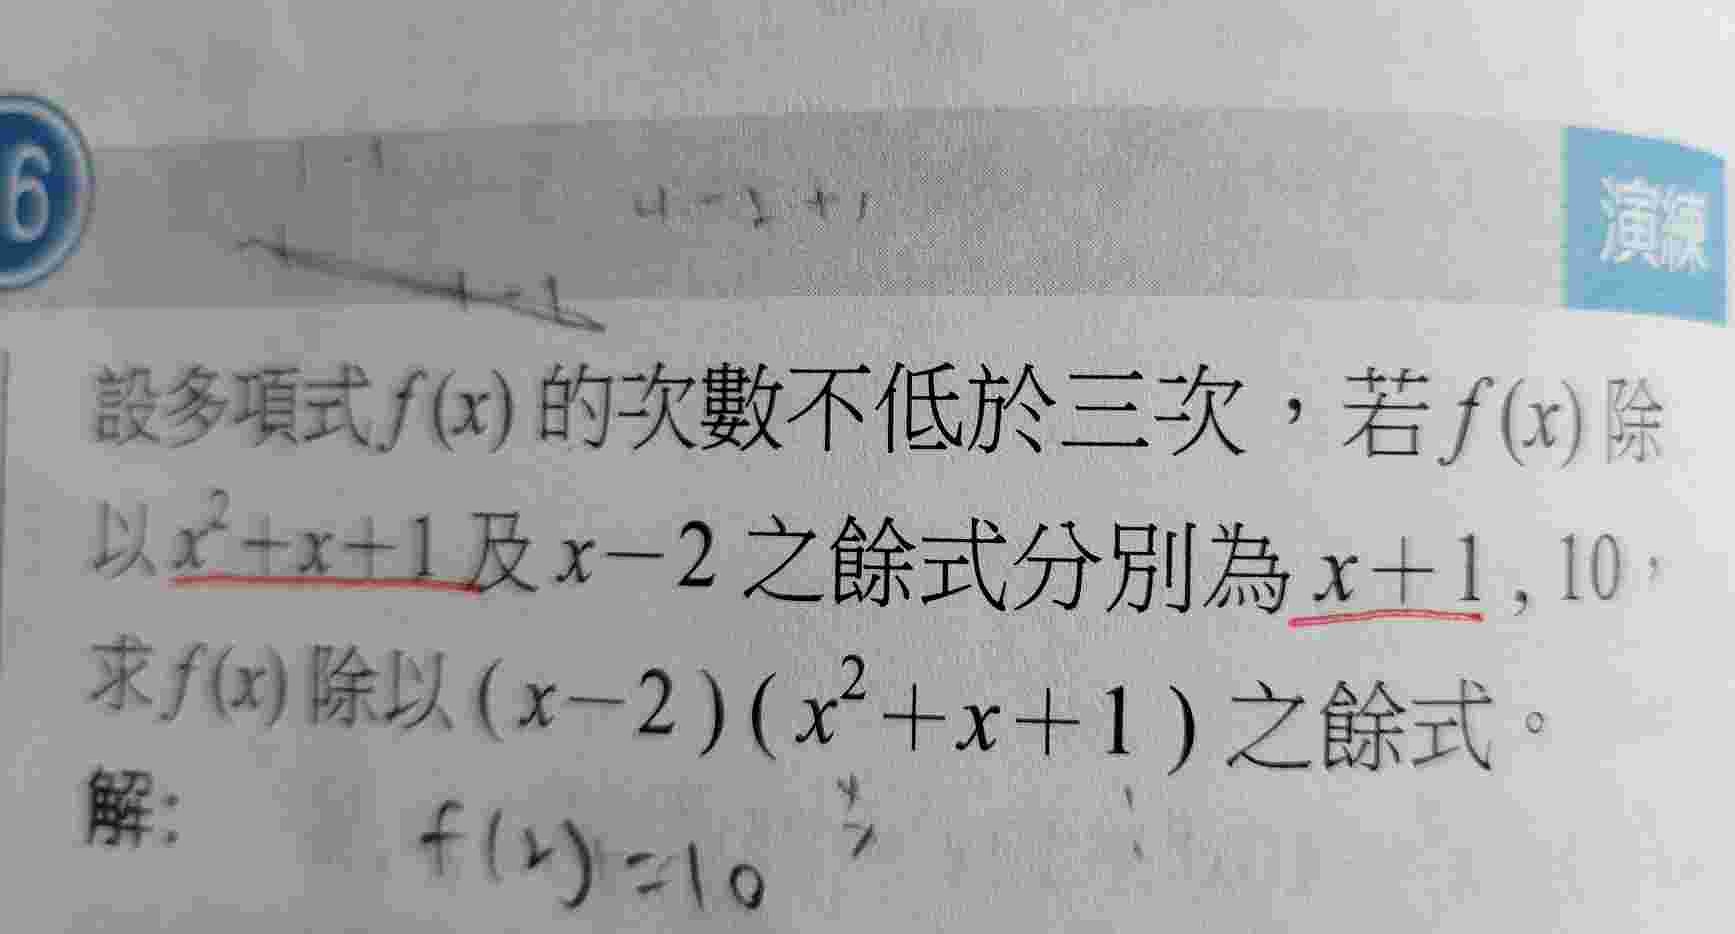 6
演練
4-2+1
設多項式f(x)的次數不低於三次，若f(x)除
以x²+x+1及x-2之餘式分別為x+1,10，
求f(x)除以(x-2)(x²+x+1)之餘式。
解:
f(2)=10